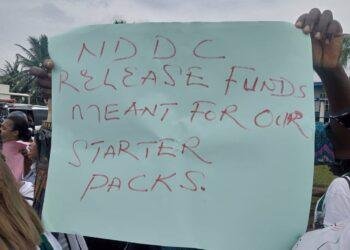 NDDC
RELEASE FUNDS
MEANT FOR OUR
STARTER
PACKS.